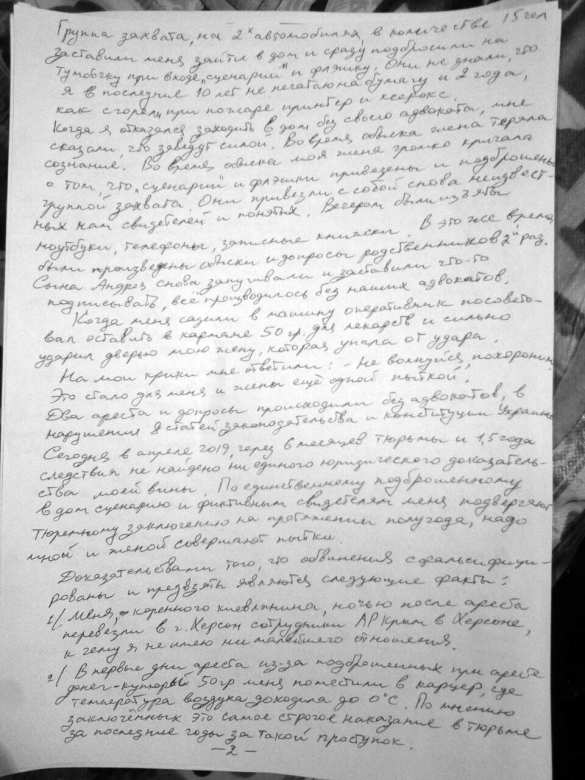 Группа захвата, на 2х автомобилях в количестве 15 чел
заставили меня зайти в дом и сразу подбросили на
тумбочку при входе „сценарий" и флэшку. Они не знали, что
я в последние 10 лет не печатаю на бумагу и 2 года,
как сгорели при пожаре принтер и ксерокс.
Когда я отказался заходить в дом без своего адвоката, мне
сказали, что заведут силой. Во время обыска жена теряла
сознание. Во время обыска моя жена громко кричала
о том, что „сценарий" и флэшки привезены и подброшены
группой захвата. Они привезли с собой снова неизвест-
ных нам свидетелей и понятых. Вечером были изъяты
ноутбуки, телефоны, записные книжки. В это же время,
были произведены обыски и допросы родственников 2й раз.
Сына Андрея снова запугивали и заставили что-то
подписывать, всё производилось без наших адвокатов.
Когда меня садили в машину оперативник посовето-
вал оставить в кармане 50 гр. для лекарств и сильно
ударил дверью мою жену, которая упала от удара.
На мои крики мне ответили: - Не волнуйся, похороним.
Это стало для меня и жены ещё одной пыткой.
Два ареста и допросы происходили без адвокатов, в
нарушения 8 статей законодательства и конституции Украины
Сегодня в апреле 2019, через 6 месяцев тюрьмы и 1,5 года
следствия не найдено ни единого юридического доказатель-
ства моей вины. По единственному подброшенному
в дом сценарию и фиктивным свидетелям меня подвергают
тюремному заключению на протяжении полугода, надо
мной и женой совершают пытки.
Доказательствами того, что обвинения сфальсифици-
рованы и предвзяты являются следующие факты:
1/ Меня, - коренного киевлянина, ночью после ареста
перевезли в г. Херсон сотрудники АР Крым в Херсоне,
к чему я не имею ни малейшего отношения.
2/ В первые дни ареста из-за подброшенных при аресте
денег - купюры 50 гр меня поместили в карцер, где
температура воздуха доходила до 0°С. По мнению
заключённых это самое строгое наказание в тюрьме
за последние годы за такой проступок.
— 2 —